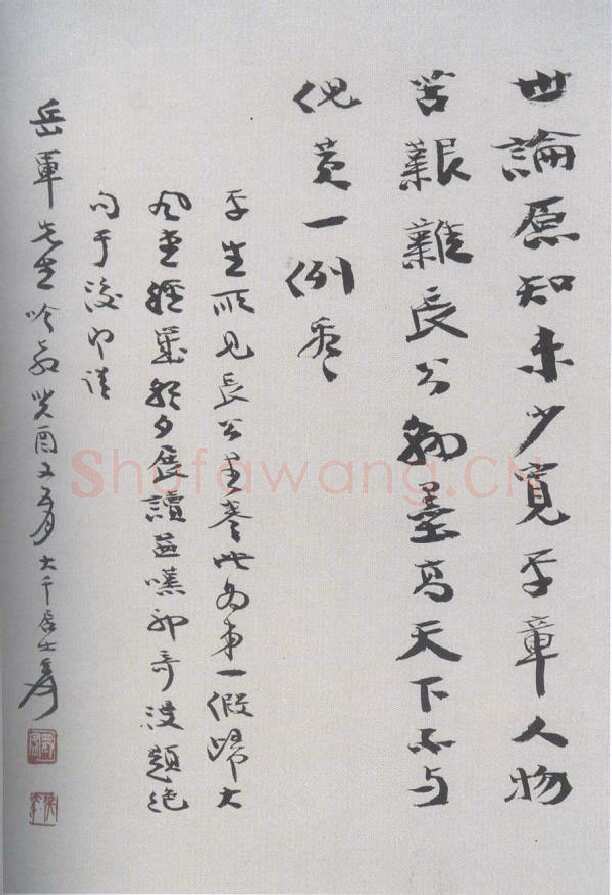 世論原知未少寬平章人物
苦艱難長公翰墨高天下不与
倪黃一例看
平生所見長公畫卷此為第一假歸大
風堂經歲朝夕展讀益嘆神奇漫題絕
句于後即請
岳軍先生吟教癸酉又五月大千居士爰
Shufawang.CN